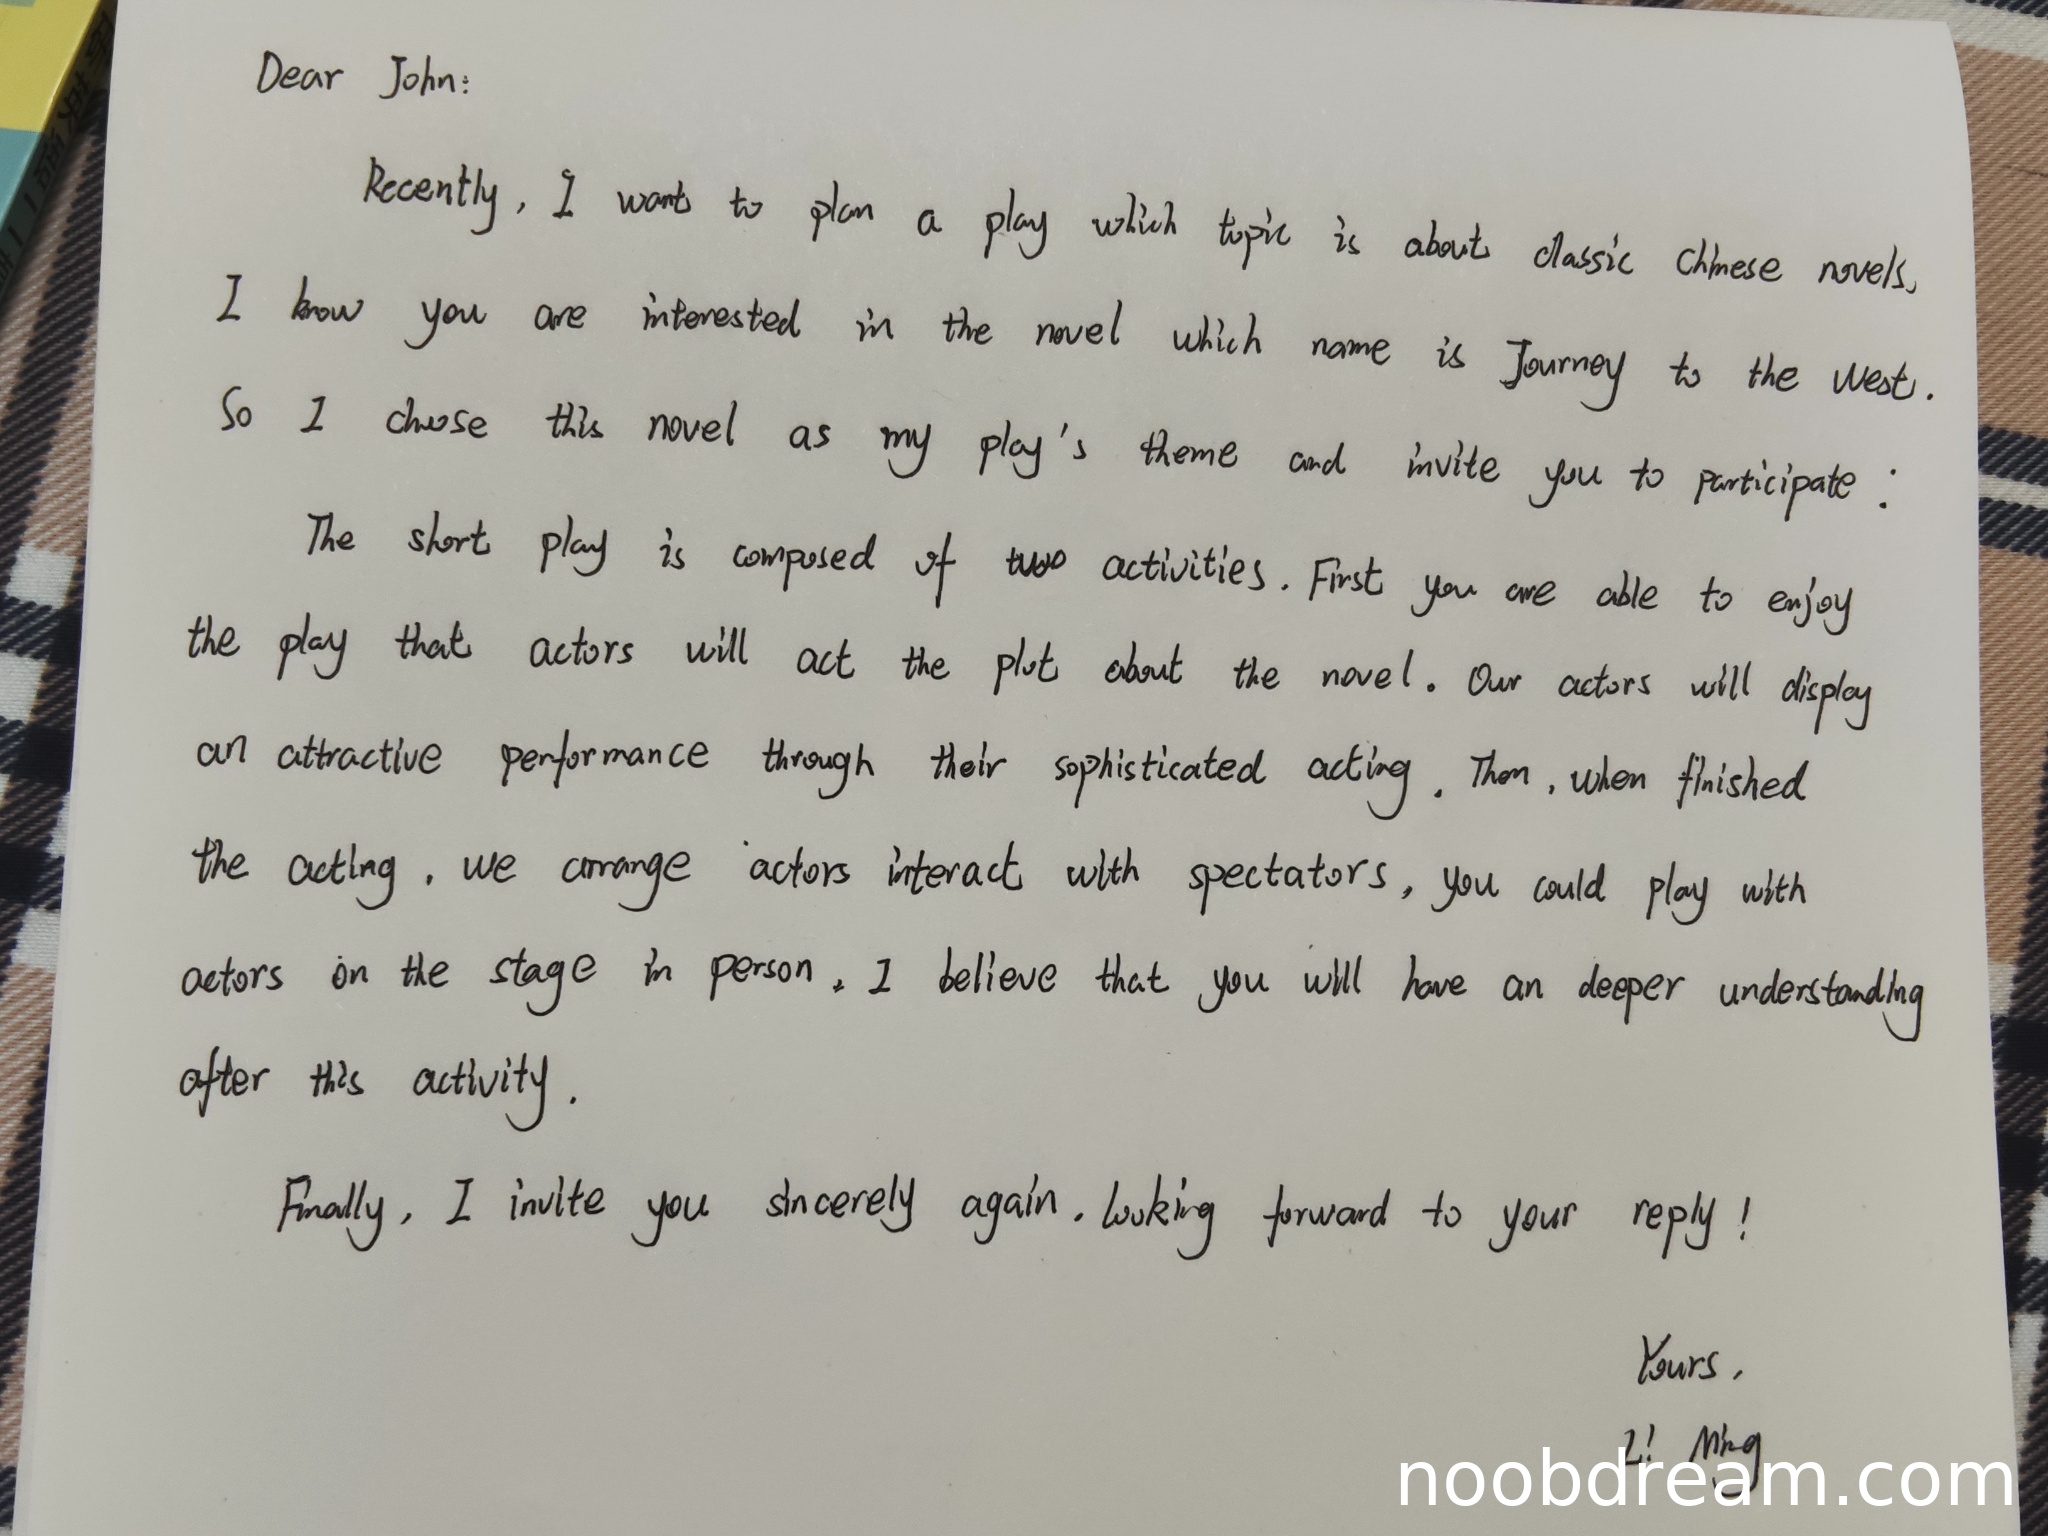 Dear John:
Recently, I want to plan a play which topic is about classic Chinese novels,
I know you are interested in the novel which name is Journey to the West.
So I choose this novel as my play's theme and invite you to participate :
The short play is composed of two activities. First you are able to enjoy
the play that actors will act the plot about the novel. Our actors will display
an attractive performance through their sophisticated acting. Then, when finished
the acting, we arrange actors interact with spectators, you could play with
actors on the stage in person. I believe that you will have an deeper understanding
after this activity.
Finally, I invite you sincerely again. looking forward to your reply!
Yours,
Li Ming
noobdream.com